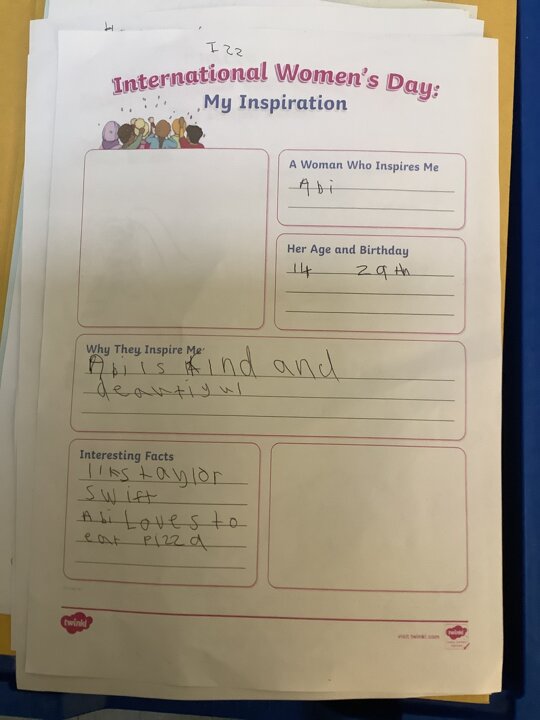 Izz
International Women's Day:
My Inspiration
A Woman Who Inspires Me
Abi
Her Age and Birthday
14 29th
Why They Inspire Me:
Abi is kind and
deautiyul
Interesting Facts
liks taylor
swift
Abi Loves to
eat pizza
twinkl
visit twinkl.com
twinkl